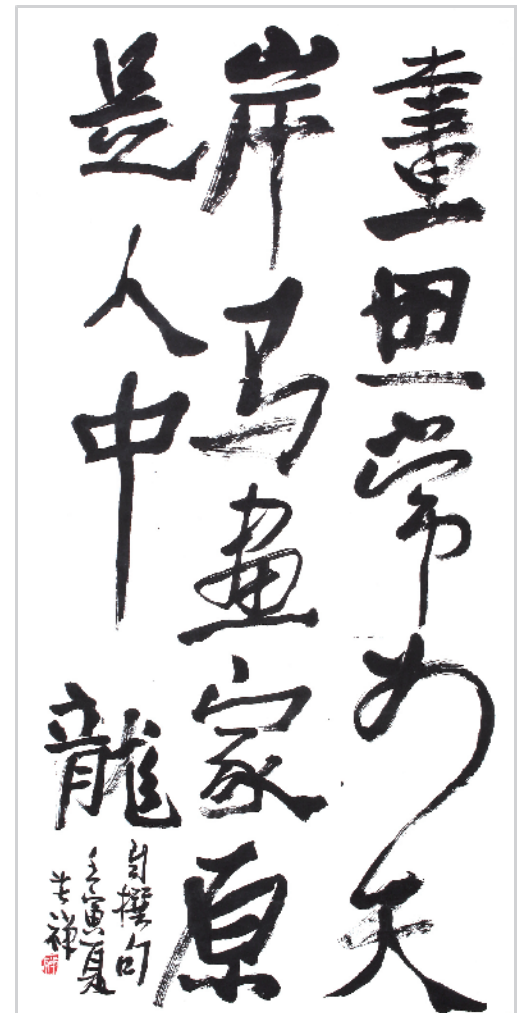 畫思常如天
岸马畫家原
是人中龍
自撰句
壬寅夏
祥